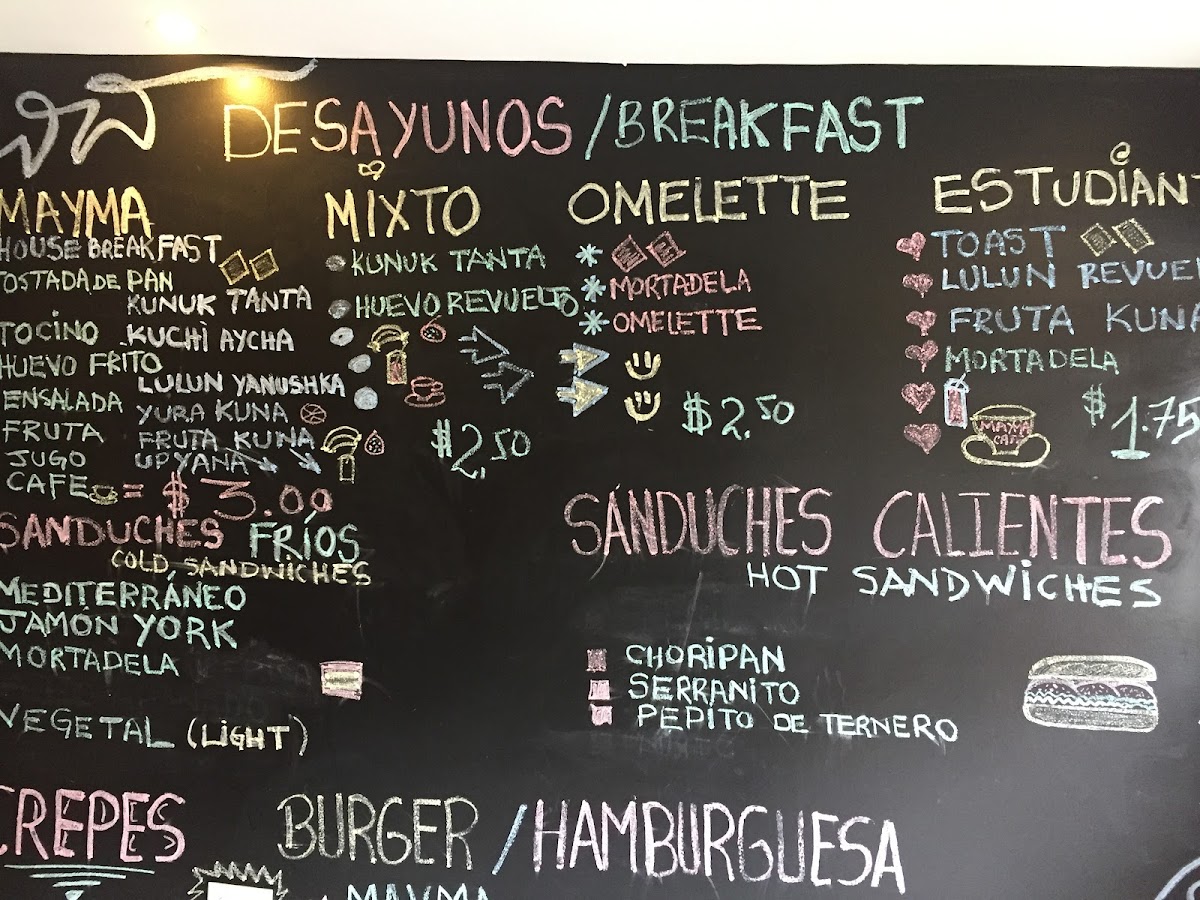 DESAYUNOS / BREAKFAST
MAYMA
HOUSE BREAKFAST
TOSTADA DE PAN
KUNUK TANTA
TOCINO KUCHI AYCHA
HUEVO FRITO
LULUN YANUSHKA
ENSALADA YURA KUNA
FRUTA FRUTA KUNA
JUGO UPYANA
CAFE = $3.00
MIXTO
KUNUK TANTA
HUEVO REVUELTO
$2,50
OMELETTE
MORTADELA
OMELETTE
$2.50
ESTUDIANT
TOAST
LULUN REVUEL
FRUTA KUNA
MORTADELA
MAYMA
CAFE
$1.75
SANDUCHES FRÍOS
COLD SANDWICHES
MEDITERRÁNEO
JAMÓN YORK
MORTADELA
VEGETAL (LIGHT)
SÁNDUCHES CALIENTES
HOT SANDWICHES
CHORIPAN
SERRANITO
PEPITO DE TERNERO
CREPES
BURGER / HAMBURGUESA
MAYMA